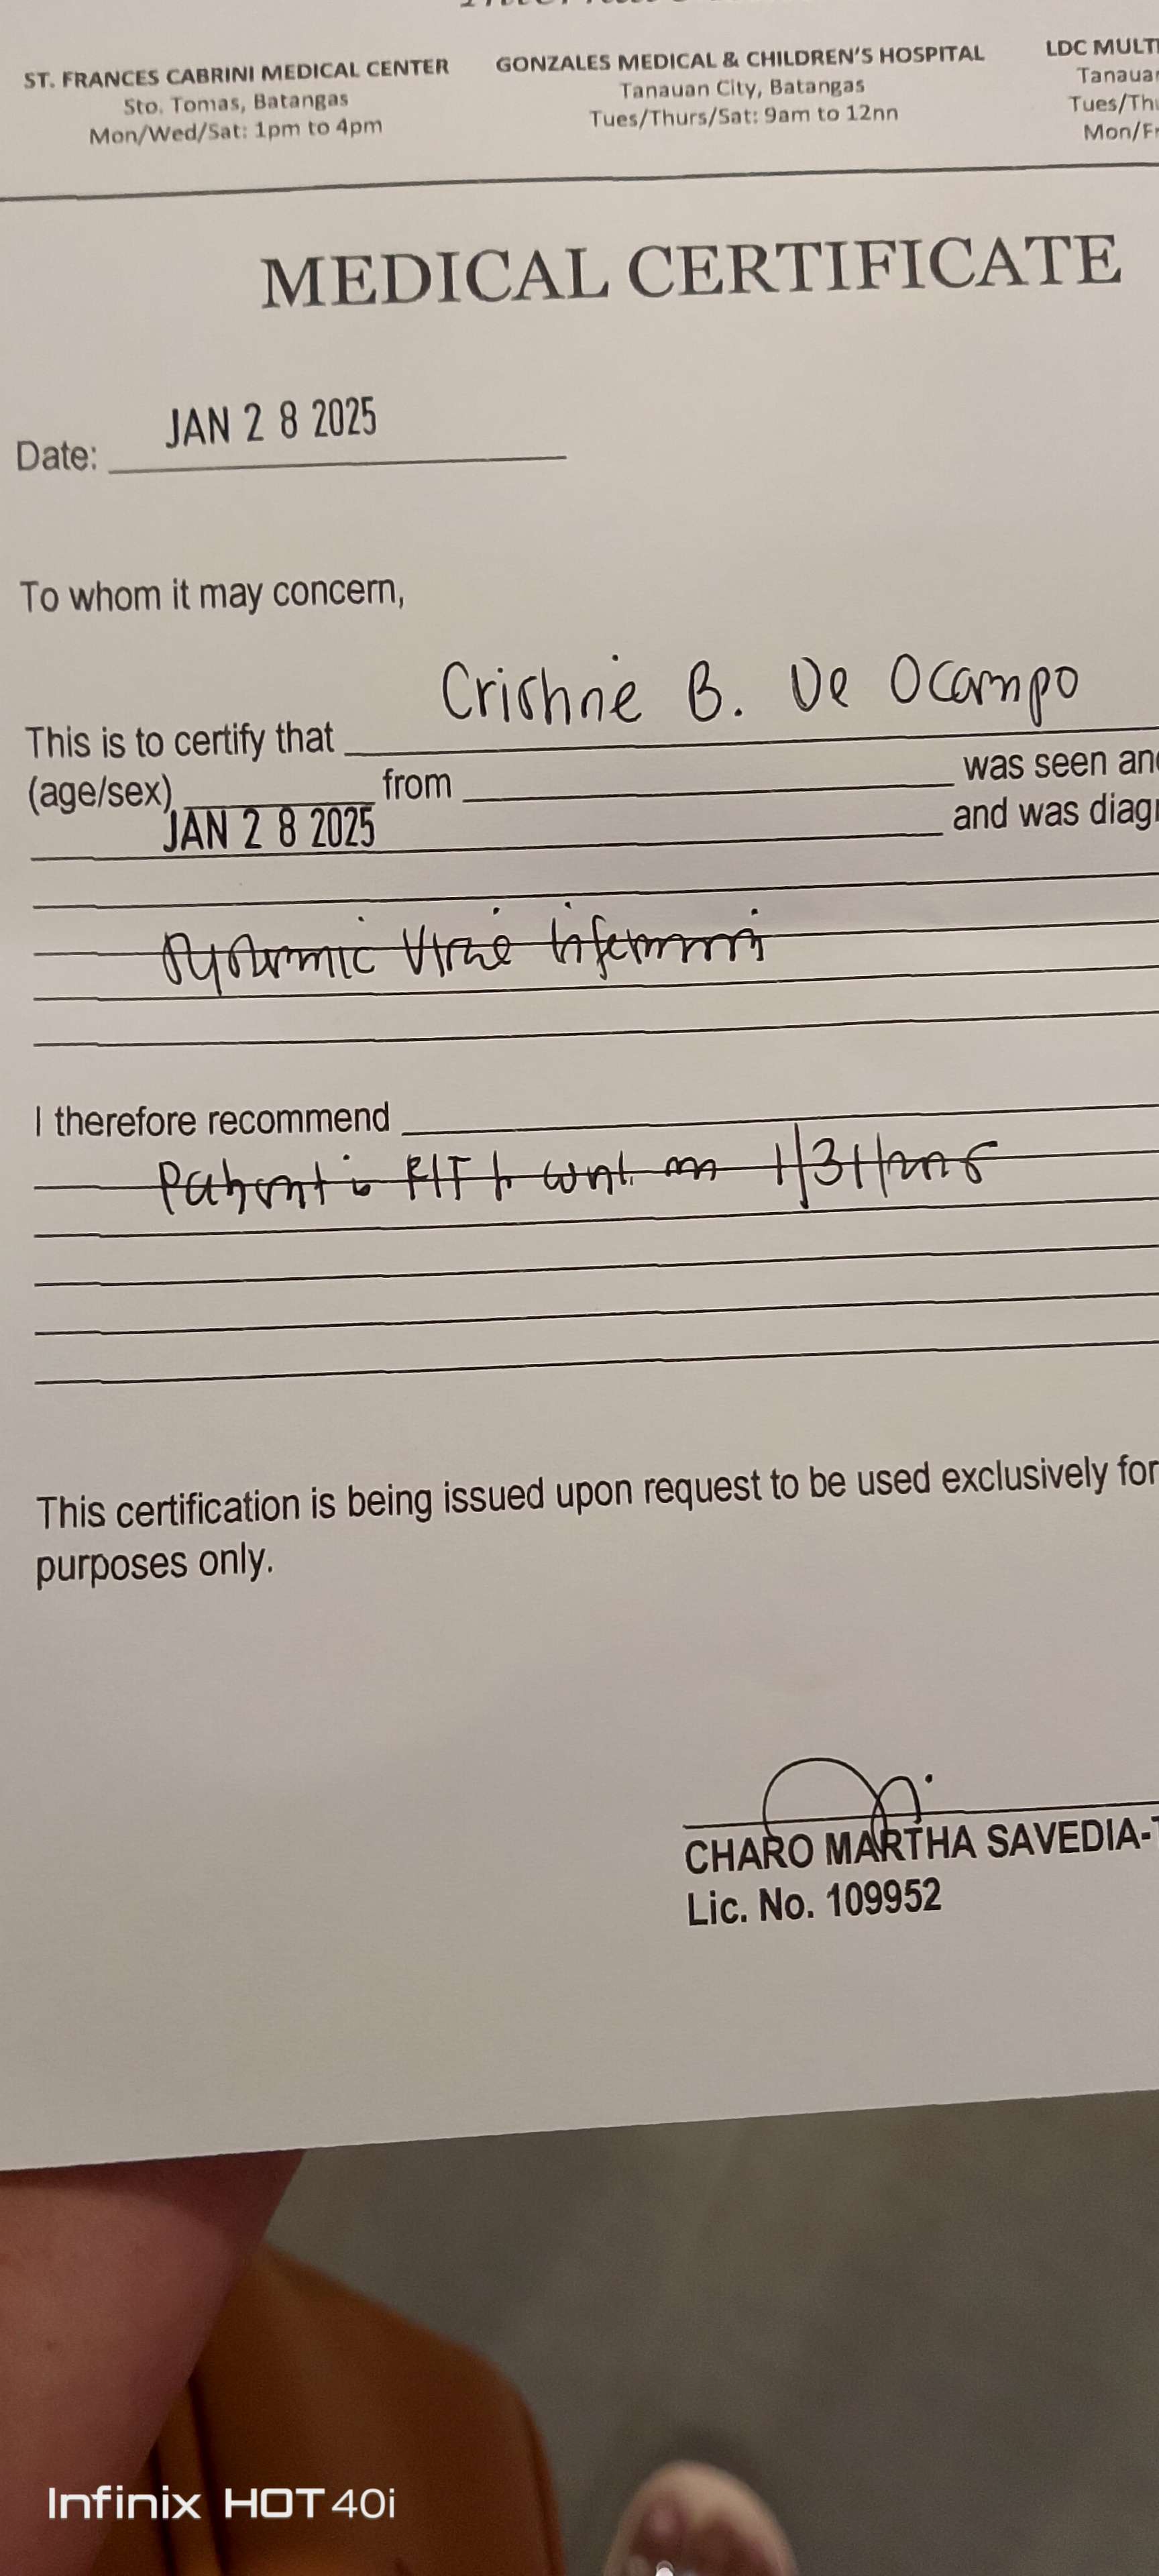 ST. FRANCES CABRINI MEDICAL CENTER
Sto. Tomas, Batangas
Mon/Wed/Sat: 1pm to 4pm
GONZALES MEDICAL & CHILDREN'S HOSPITAL
Tanauan City, Batangas
Tues/Thurs/Sat: 9am to 12nn
LDC MULT
Tanaua
Tues/Th
Mon/F
MEDICAL CERTIFICATE
Date: JAN 28 2025
To whom it may concern,
This is to certify that B. De Ocampo
(age/sex) from was seen an
JAN 28 2025 and was diag
Systemic Viral
I therefore recommend
Patient is FIT to work on 1/31/2025
This certification is being issued upon request to be used exclusively for
purposes only.
CHARO MARTHA SAVEDIA-
Lic. No. 109952
Infinix HOT 40i